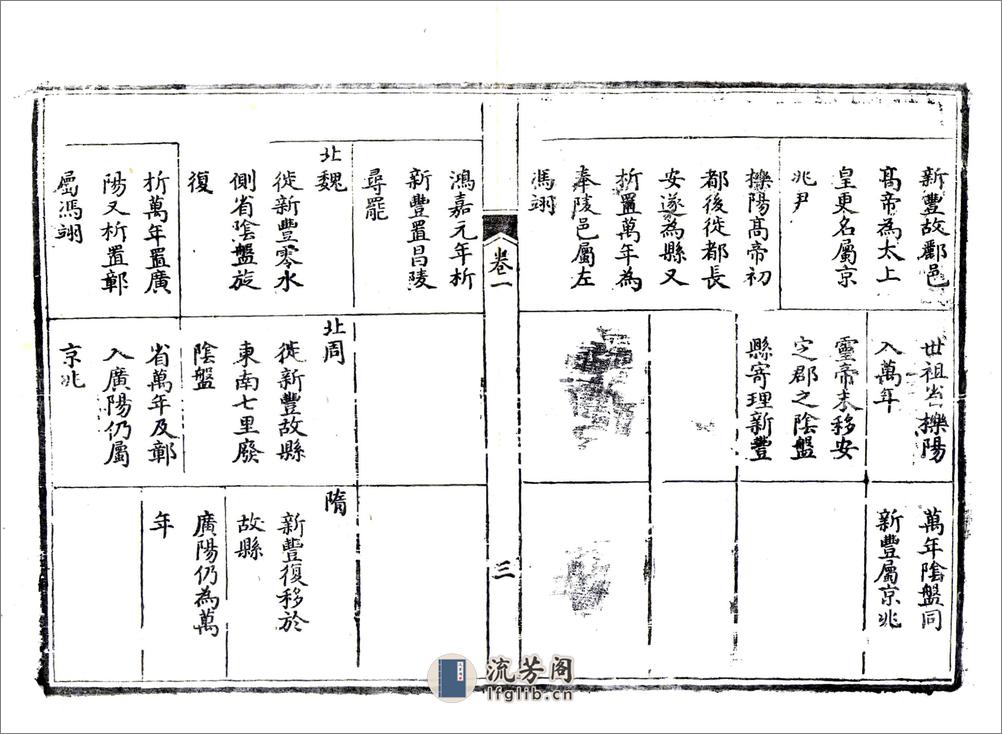 新豐故酈邑
髙帝為太上
皇更名屬京
兆尹
櫟陽髙帝初
都後徙都長
安遂為縣又
析置萬年為
奉陵邑屬左
馮翊
世祖省櫟陽
入萬年
靈帝末移安
定郡之陰盤
縣寄理新豐
萬年陰盤同
新豐屬京兆
卷一
三
鴻嘉元年析
新豐置昌陵
尋罷
北魏
徙新豐零水
側省陰盤旋
復
析萬年置廣
陽又析置鄣
屬馮翊
北周
徙新豐故縣
東南七里廢
陰盤
省萬年及鄣
入廣陽仍屬
京兆
隋
新豐復移於
故縣
廣陽仍為萬
年
流芳阁
lfglib.cn